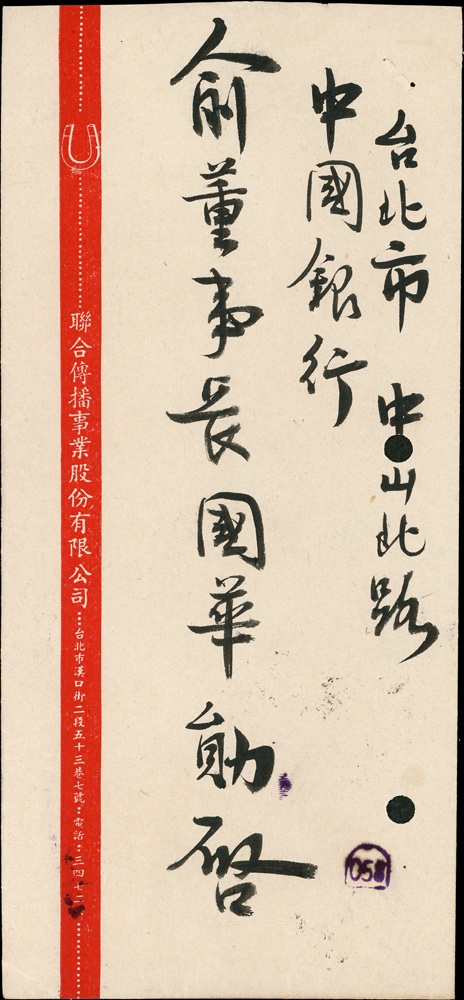 台北市 中山北路
中國銀行
俞董事長國華勛啓
聯合傳播事業股份有限公司…台北市漢口街二段五十三巷七號…電話…三四七二